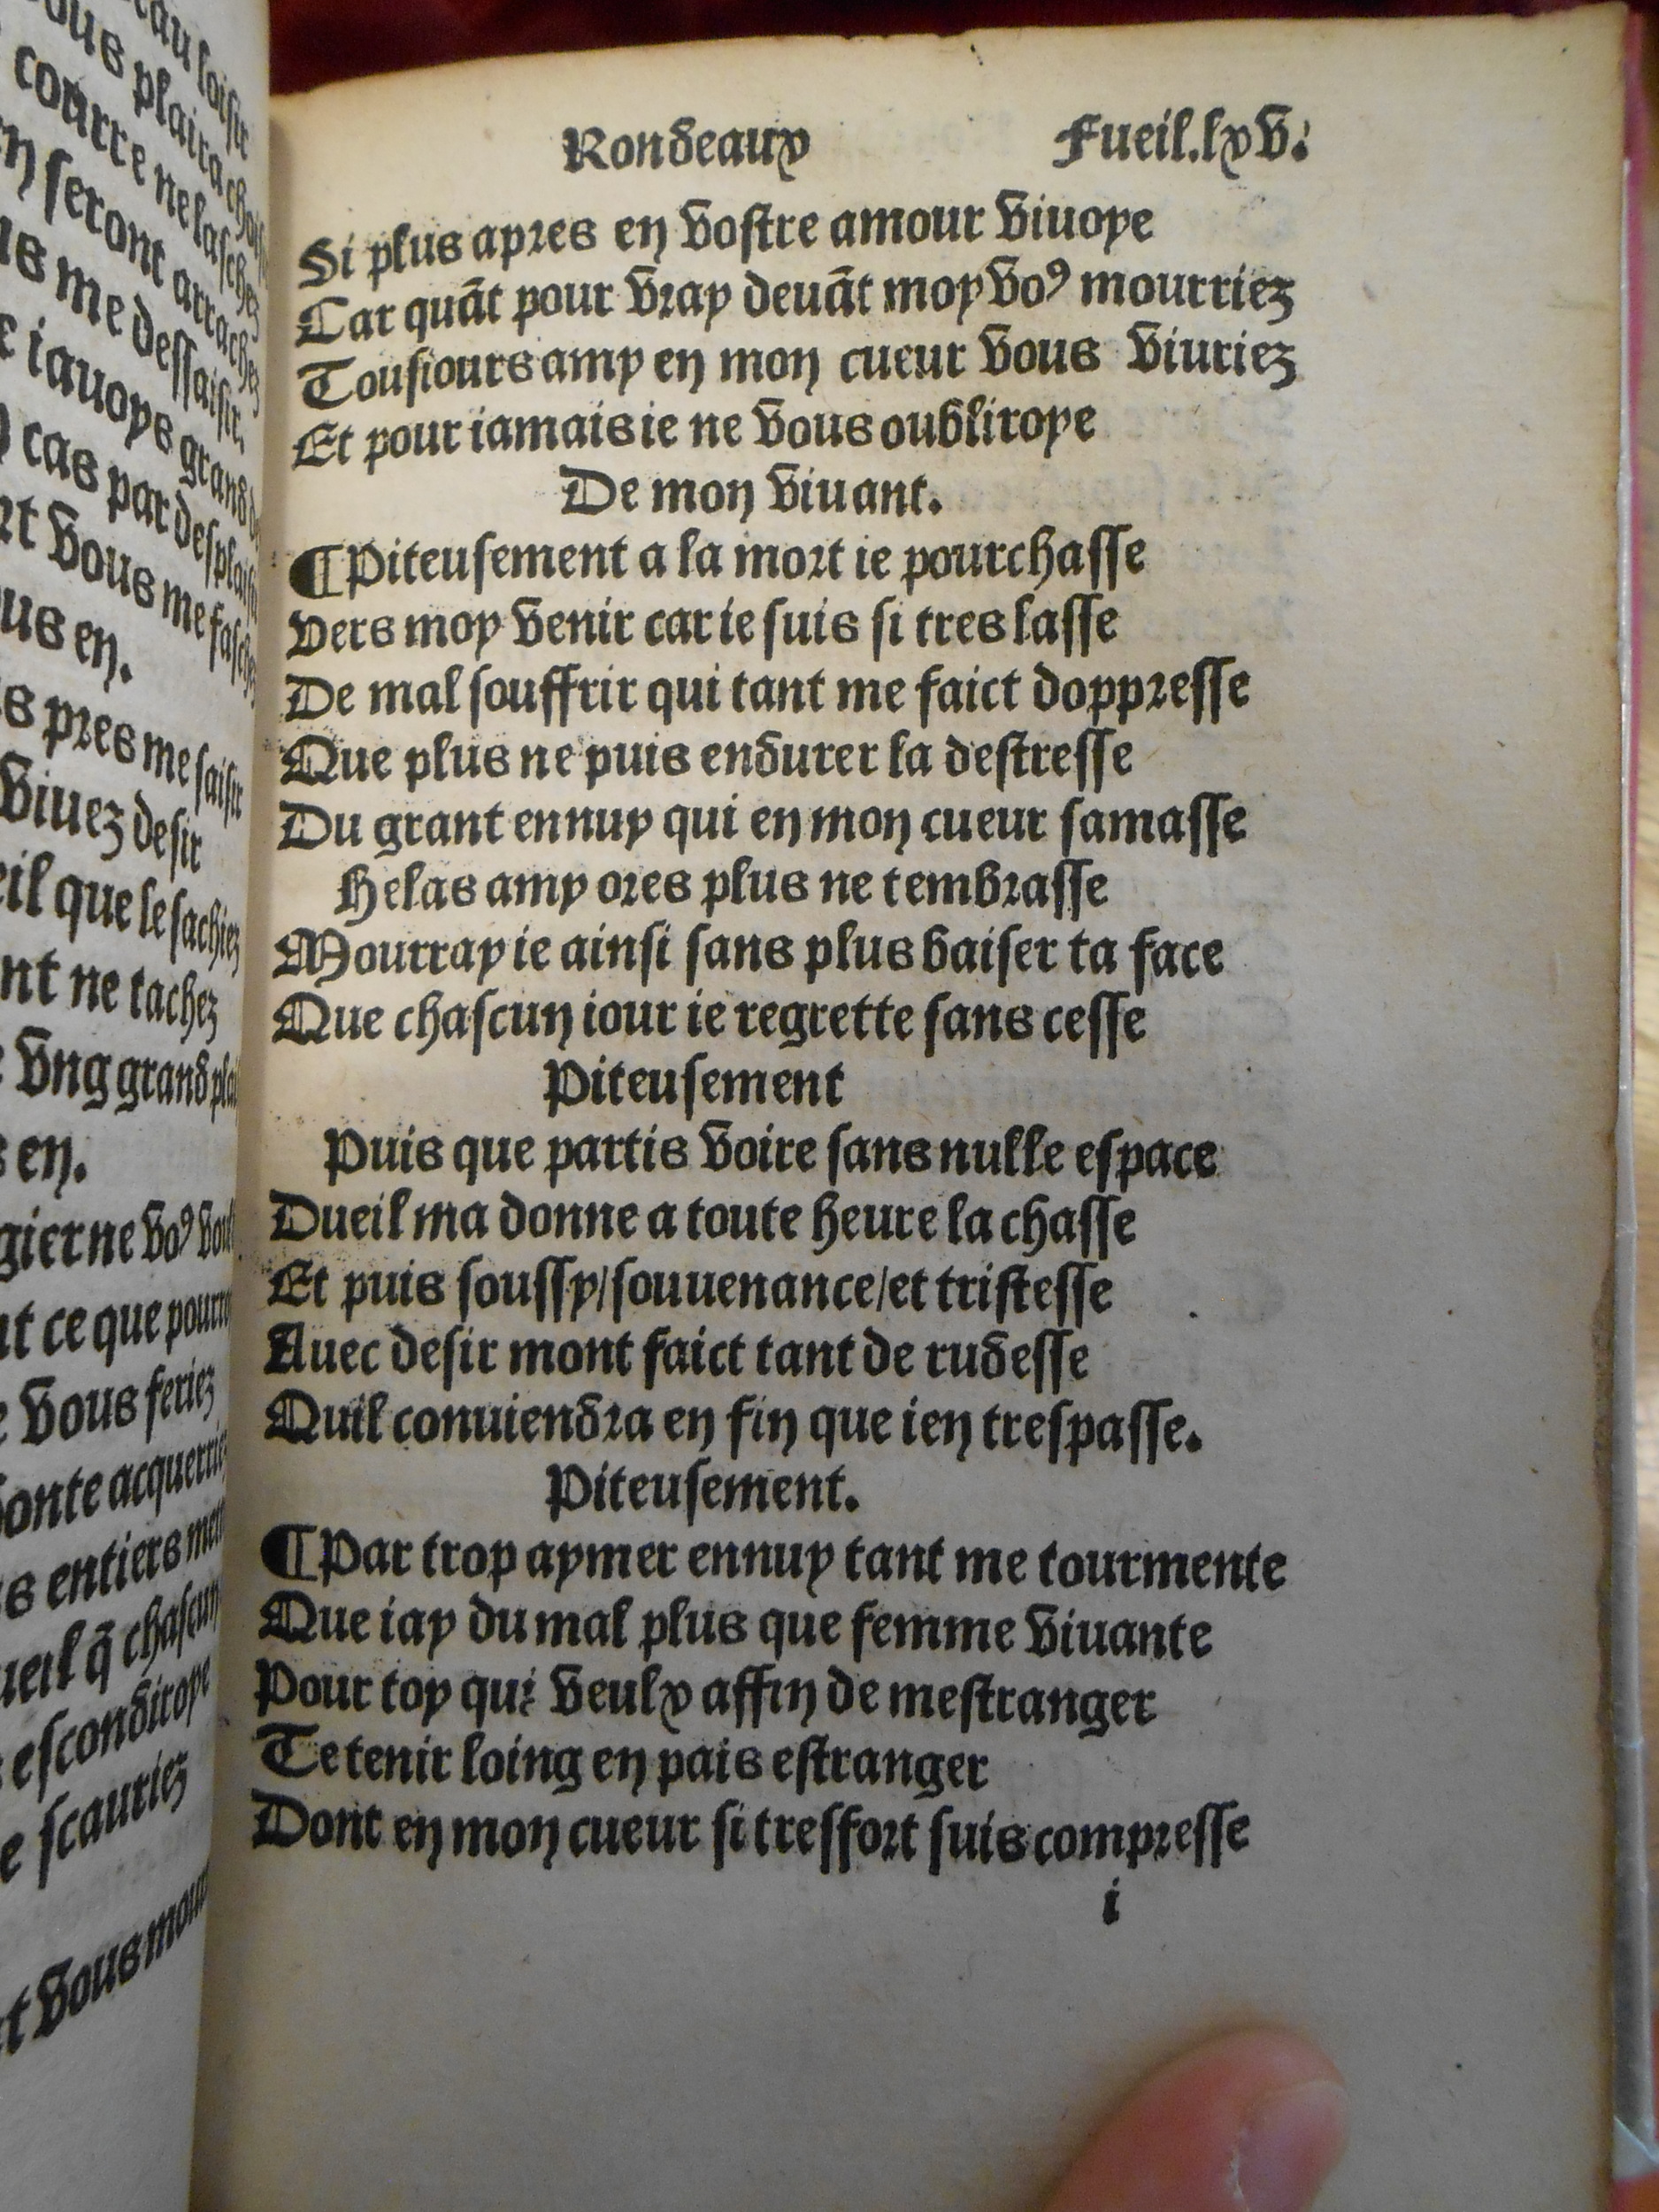 au loisir
vous plaira
courre ne laschez
seront arrachez
me dessaisir.
iauoys grand
cas par desplaisir
vous me faschez
us en.
pres me saisir
viuez desir
que le sachiez
nt ne tachez
vng grand
s en.
ne voꝰ
ce que
vous feriez
acquerriez
entiers
q̃ chascun
escondiroye
scauriez
vous
Rondeaux Fueil.lxv.
Si plus apres en vostre amour viuoye
Car quãt pour vray deuãt moy voꝰ mourriez
Tousiours amy en mon cueur vous viuriez
Et pour iamais ie ne vous oubliroye
De mon viuant.
¶Piteusement a la mort ie pourchasse
Vers moy venir car ie suis si tres lasse
De mal souffrir qui tant me faict doppresse
Que plus ne puis endurer la destresse
Du grant ennuy qui en mon cueur samasse
Helas amy ores plus ne tembrasse
Mourray ie ainsi sans plus baiser ta face
Que chascun iour ie regrette sans cesse
Piteusement
Puis que partis voire sans nulle espace
Dueil ma donne a toute heure la chasse
Et puis soussy/souuenance/et tristesse
Auec desir mont faict tant de rudesse
Quil conuiendra en fin que ien trespasse.
Piteusement.
¶Par trop aymer ennuy tant me tourmente
Que iay du mal plus que femme viuante
Pour toy qui veulx affin de mestranger
Te tenir loing en pais estranger
Dont en mon cueur si tresfort suis compresse
i